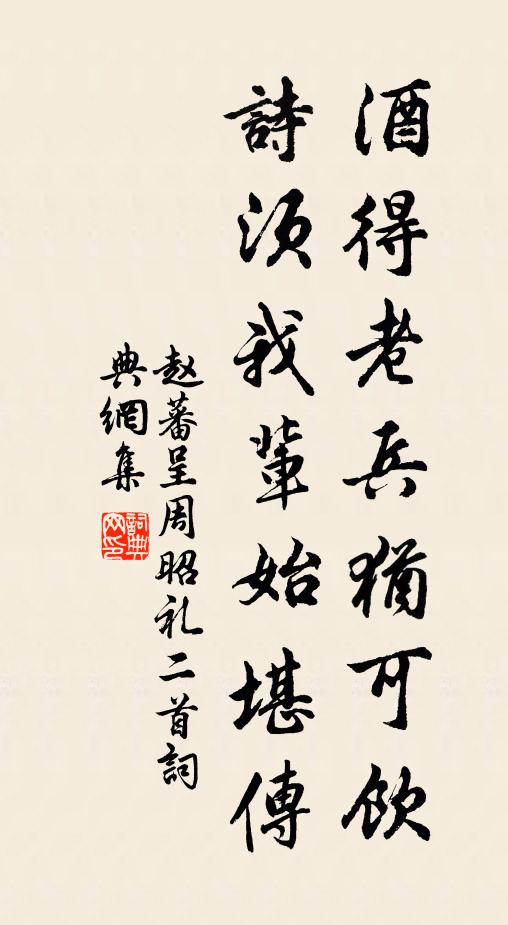 酒得老兵猶可飲
詩須我輩始堪傳
赵蕃呈周昭礼二首詞
典網集
詞典
网印